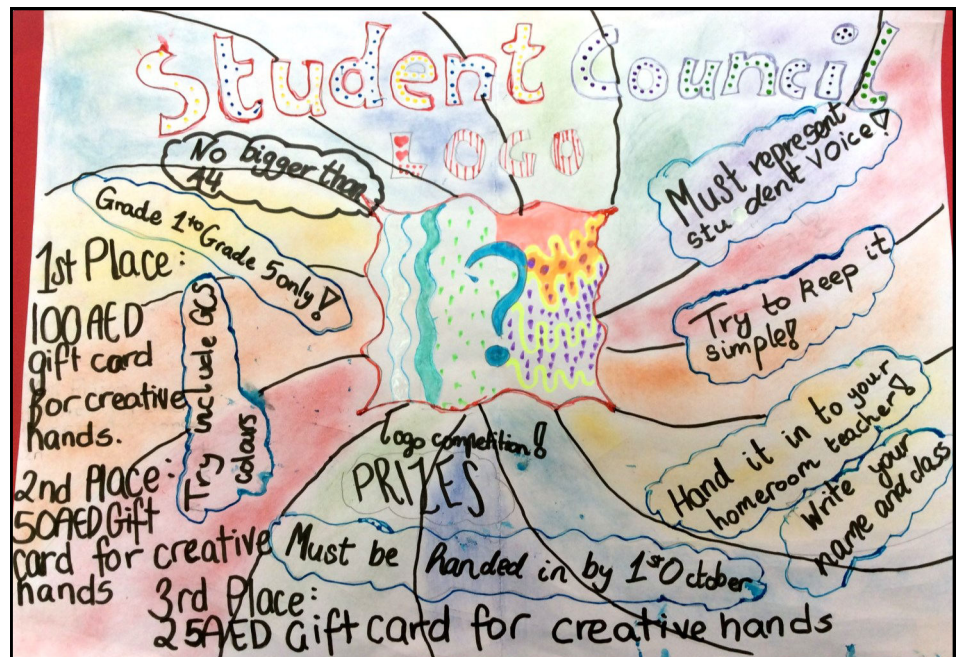 Student Council
LOGO
No bigger than
A4
Grade 1 to Grade 5 only!
Must represent
student voice!
Try to keep it
simple!
Hand it in to your
homeroom teacher!
Write your
name and class
Try include GCS
colours
logo competition!
PRIZES
Must be handed in by 1st October
1st Place:
100 AED
gift card
for creative
hands.
2nd Place:
50AED Gift
card for creative
hands
3rd Place:
25AED Gift card for creative hands
?